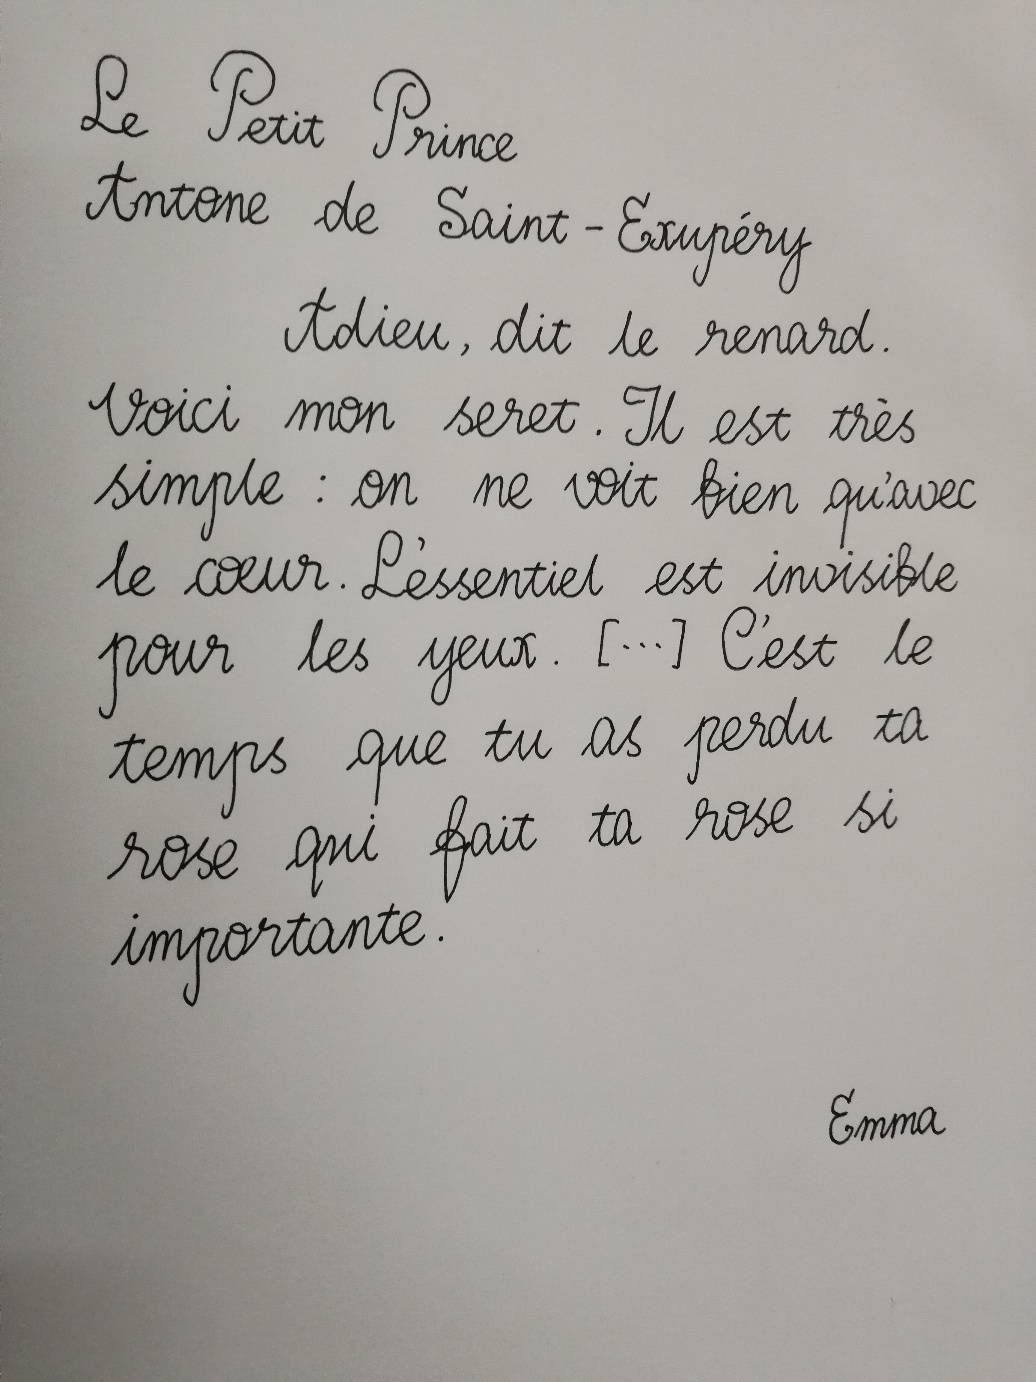 Le Petit Prince
Antone de Saint-Exupéry
Adieu, dit le renard.
Voici mon seret. Il est très
simple : on ne voit bien qu'avec
le cœur. L'éssentiel est invisible
pour les yeux. [...] C'est le
temps que tu as perdu ta
rose qui fait ta rose si
importante.
Emma